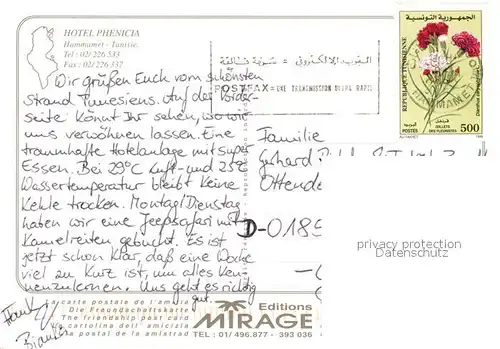 HOTEL PHENICIA
Hammamet - Tunisie.
Tel : 02/226 533
Fax : 02/226 337
البريد الإلكتروني = سرعة فائقة
POSTFAX = UNE TRANSMISSION ULTRA RAPIDE
الجمهورية التونسية
REPUBLIQUE TUNISIENNE
ŒILLETS DES FLEURISTES
Dianthus caryophyllus
البريد
POSTES
500
HAMMAMET
Wir grüßen Euch vom schönsten
Strand Tunesiens. Auf der Vorder-
seite könnt Ihr sehen, wo wir
uns verwöhnen lassen. Eine
traumhafte Hotelanlage mit super
Essen. Bei 29°C Luft- und 25°C
Wassertemperatur bleibt keine
Kehle trocken. Montag/Dienstag
haben wir eine Jeepsafari mit
Kamelreiten gebucht. Es ist
jetzt schon klar, daß eine Woche
viel zu kurz ist, um alles ken-
nenzulernen. Uns geht es richtig
gut.
Frank
Bianka
Familie
Gerhard
Ottendo
D-0185
privacy protection
Datenschutz
La carte postale de l'amitié
Die Freundschaftskarte
The friendship post card
La cartolina dell'amicizia
La postal de la amistad
Editions
MIRAGE
TEL : 01/496.877 - 393 036